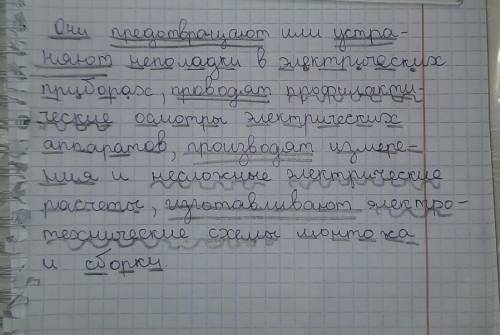 Они предотвращают или устра-
няют неполадки в электрических
приборах, проводят профилакти-
ческие осмотры электрических
аппаратов, производят измере-
ния и несложные электрические
расчеты, изготавливают электро-
технические схемы монтажа
и сборки.